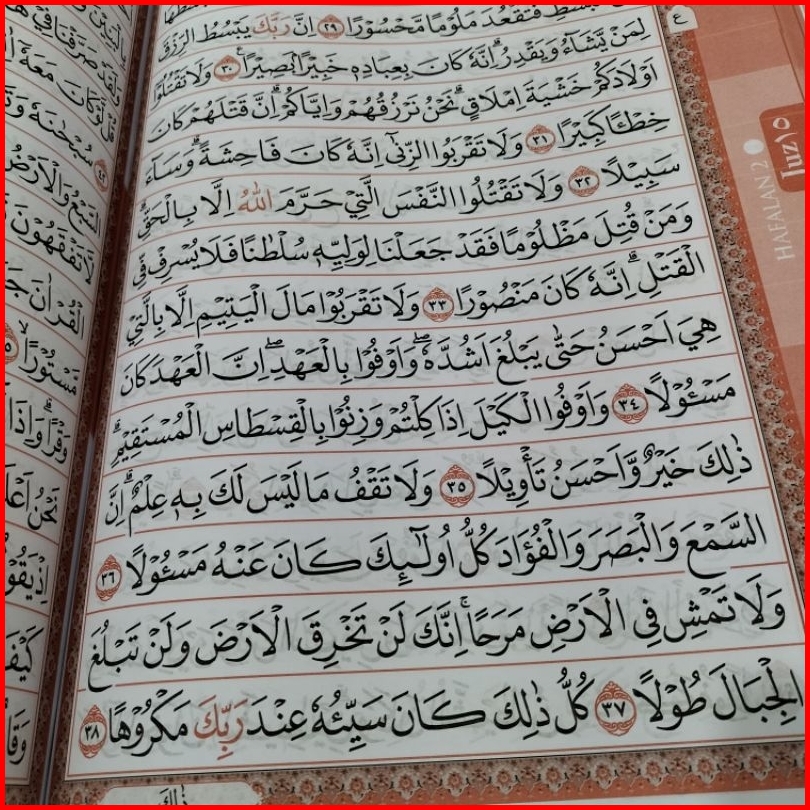 فَتَقْعُدَ مَلُوْمًا مَّحْسُوْرًا ٢٩ اِنَّ رَبَّكَ يَبْسُطُ الرِّزْقَ
لِمَنْ يَّشَاۤءُ وَيَقْدِرُ ۗاِنَّهٗ كَانَ بِعِبَادِهٖ خَبِيْرًاۢ بَصِيْرًا ࣖ ٣٠ وَلَا تَقْتُلُوْٓا
اَوْلَادَكُمْ خَشْيَةَ اِمْلَاقٍۗ نَحْنُ نَرْزُقُهُمْ وَاِيَّاكُمْۗ اِنَّ قَتْلَهُمْ كَانَ
خِطْـًٔا كَبِيْرًا ٣١ وَلَا تَقْرَبُوا الزِّنٰىٓ اِنَّهٗ كَانَ فَاحِشَةًۗ وَسَاۤءَ
سَبِيْلًا ٣٢ وَلَا تَقْتُلُوا النَّفْسَ الَّتِيْ حَرَّمَ اللّٰهُ اِلَّا بِالْحَقِّۗ
وَمَنْ قُتِلَ مَظْلُوْمًا فَقَدْ جَعَلْنَا لِوَلِيِّهٖ سُلْطٰنًا فَلَا يُسْرِفْ فِّى
الْقَتْلِۗ اِنَّهٗ كَانَ مَنْصُوْرًا ٣٣ وَلَا تَقْرَبُوْا مَالَ الْيَتِيْمِ اِلَّا بِالَّتِيْ
هِيَ اَحْسَنُ حَتّٰى يَبْلُغَ اَشُدَّهٗۖ وَاَوْفُوْا بِالْعَهْدِۖ اِنَّ الْعَهْدَ كَانَ
مَسْـُٔوْلًا ٣٤ وَاَوْفُوا الْكَيْلَ اِذَا كِلْتُمْ وَزِنُوْا بِالْقِسْطَاسِ الْمُسْتَقِيْمِۗ
ذٰلِكَ خَيْرٌ وَّاَحْسَنُ تَأْوِيْلًا ٣٥ وَلَا تَقْفُ مَا لَيْسَ لَكَ بِهٖ عِلْمٌ ۗاِنَّ
السَّمْعَ وَالْبَصَرَ وَالْفُؤَادَ كُلُّ اُولٰۤىِٕكَ كَانَ عَنْهُ مَسْـُٔوْلًا ٣٦
وَلَا تَمْشِ فِى الْاَرْضِ مَرَحًاۚ اِنَّكَ لَنْ تَخْرِقَ الْاَرْضَ وَلَنْ تَبْلُغَ
الْجِبَالَ طُوْلًا ٣٧ كُلُّ ذٰلِكَ كَانَ سَيِّئُهٗ عِنْدَ رَبِّكَ مَكْرُوْهًا ٣٨
ذٰلِكَ
ع
HAFALAN 2
Juz ١٥